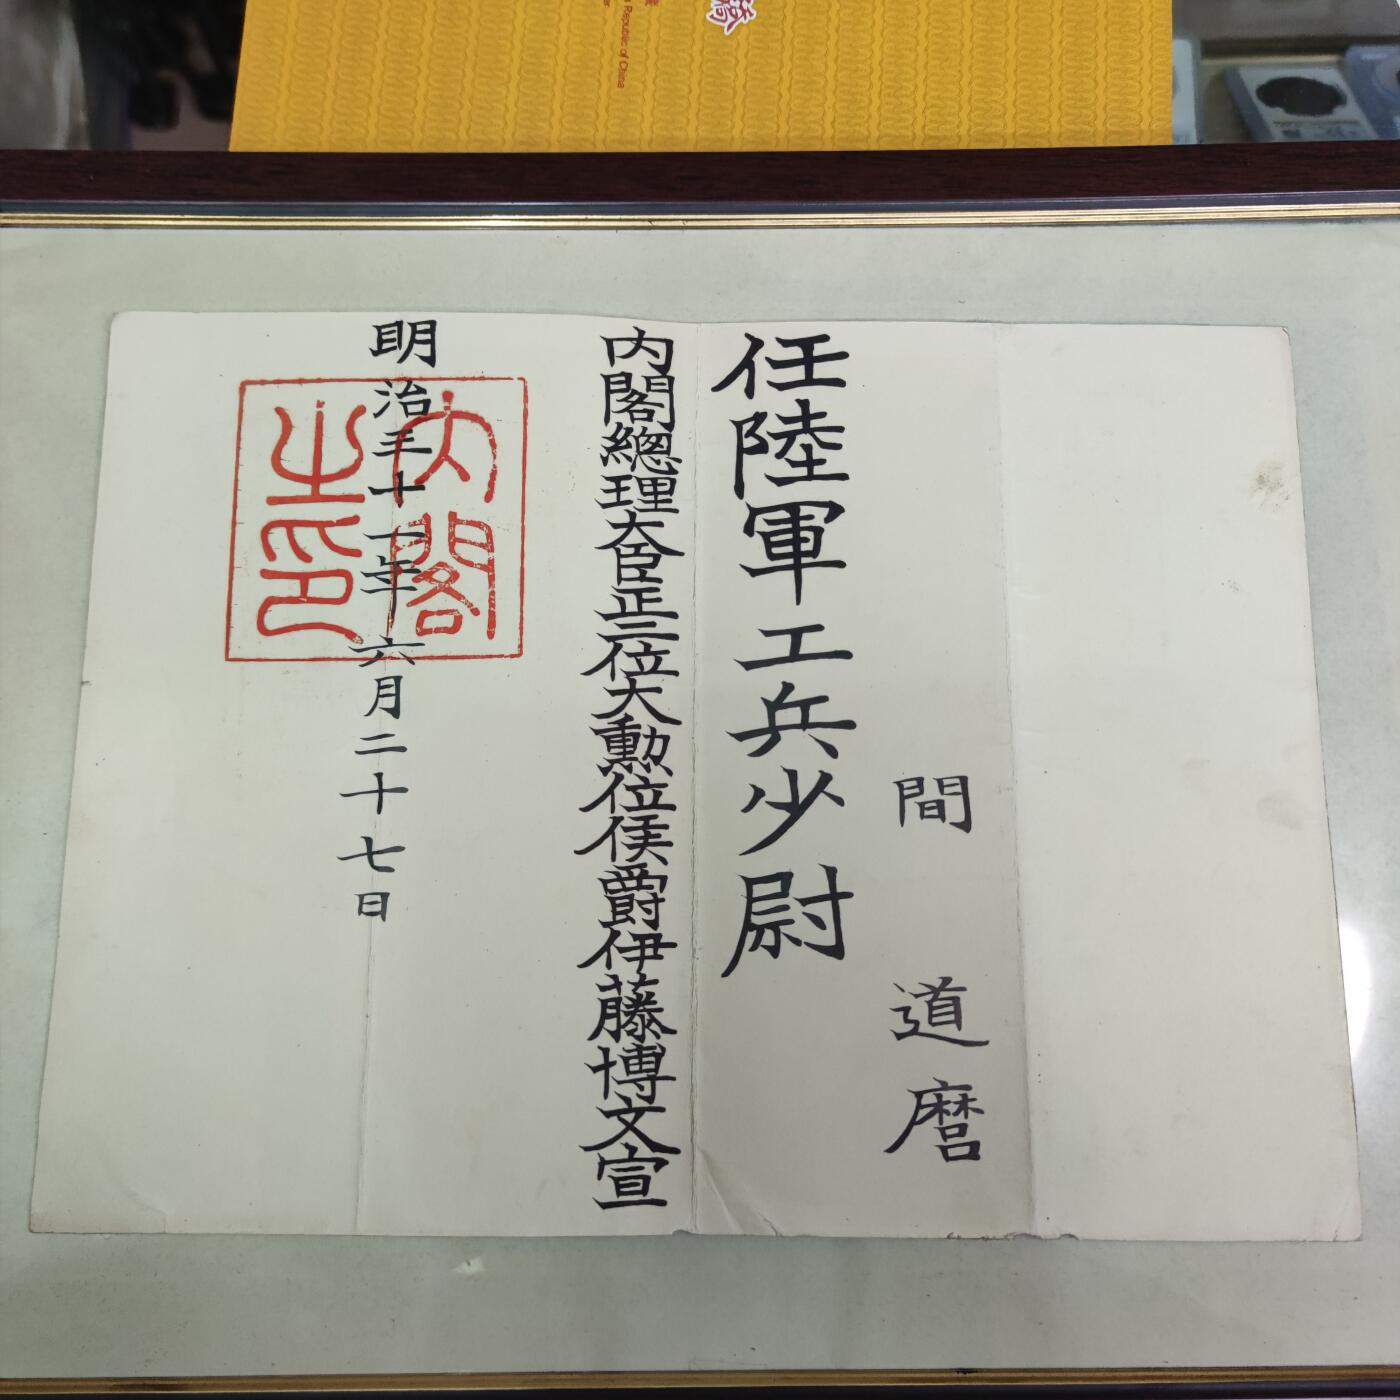 間道麿
任陸軍工兵少尉
内閣總理大臣正二位大勳位侯爵伊藤博文宣
明治三十一年六月二十七日
内閣
之印
Republic of China